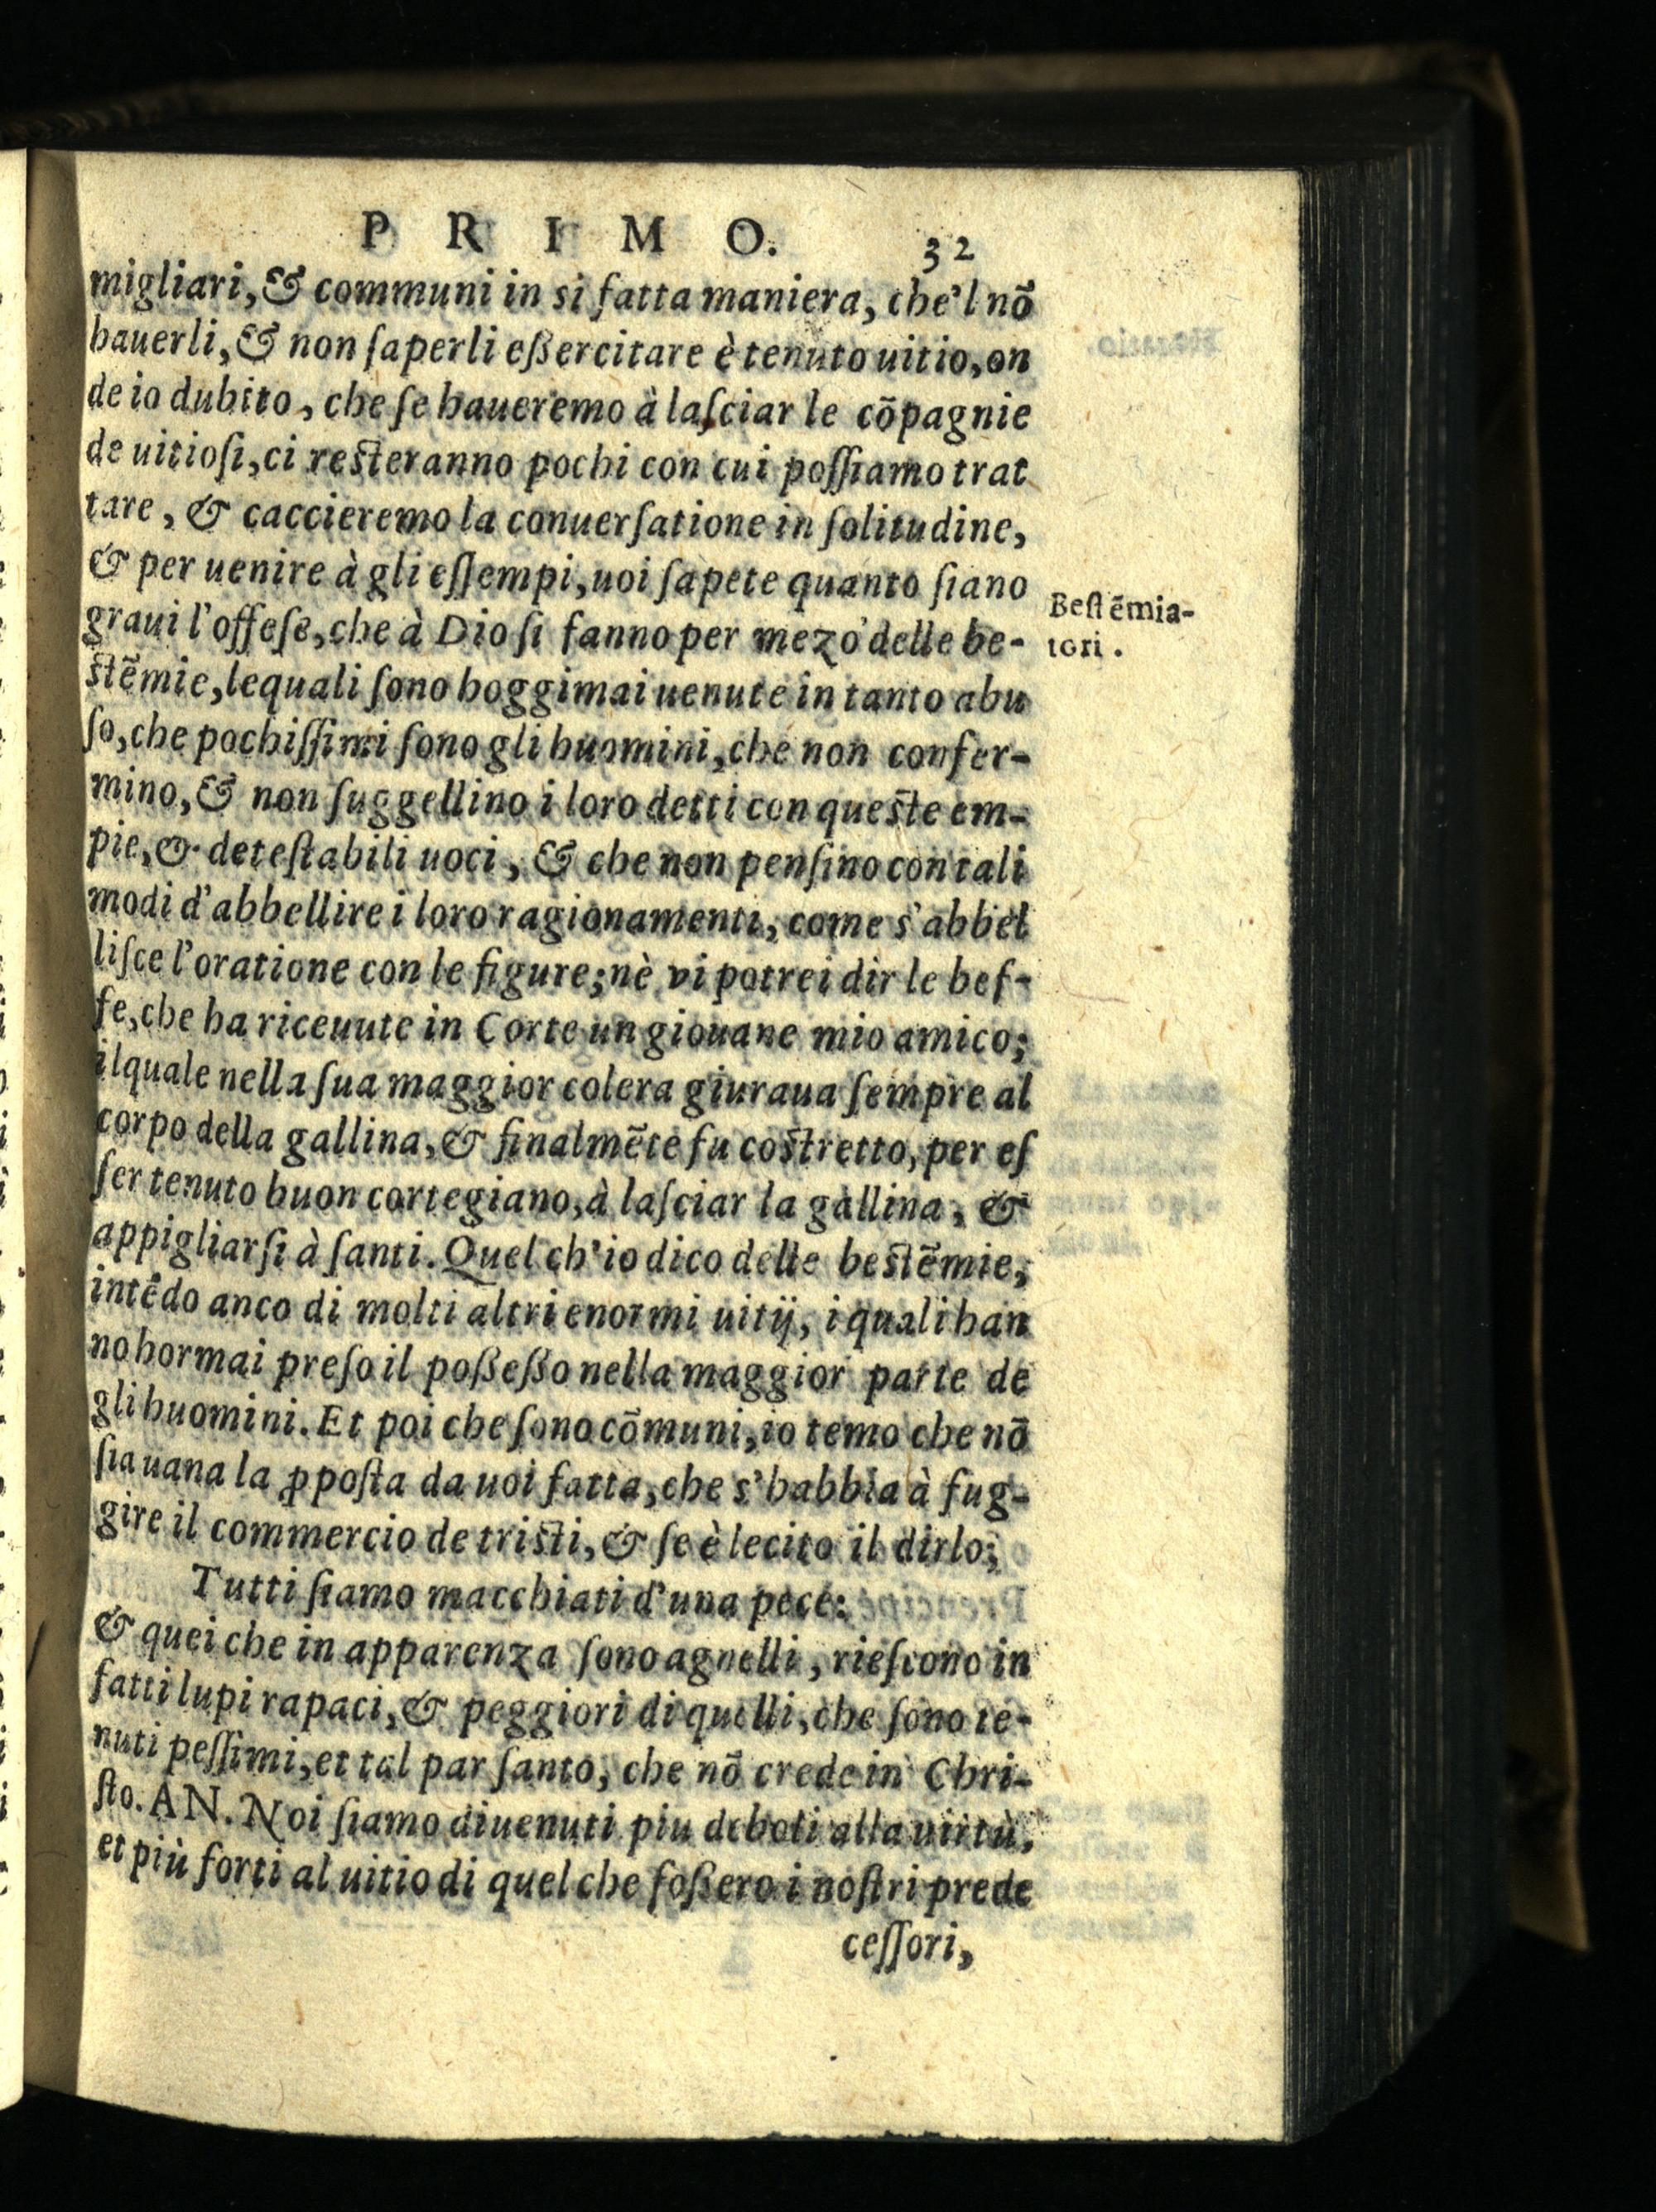 PRIMO. 32
migliari, & communi in si fatta maniera, che'l nō
hauerli, & non ſaperli eßercitare è tenuto uitio, on
de io dubito, che ſe haueremo à laſciar le cōpagnie
de uitioſi, ci reſteranno pochi con cui poſſiamo trat
tare, & caccieremo la conuerſatione in ſolitudine,
& per uenire à gli eſſempi, uoi ſapete quanto ſiano
graui l'offeſe, che à Dio ſi fanno per mezo delle be-
ſtēmie, lequali ſono hoggimai uenute in tanto abu
ſo, che pochiſſimi ſono gli huomini, che non confer-
mino, & non ſuggellino i loro detti con queſte em-
pie, & deteſtabili uoci, & che non penſino con tali
modi d'abbellire i loro ragionamenti, come s'abbel
liſce l'oratione con le figure; nè vi potrei dir le bef-
fe, che ha riceuute in Corte un giouane mio amico;
ilquale nella ſua maggior colera giuraua ſempre al
corpo della gallina, & finalmēte fu coſtretto, per eſ
ſer tenuto buon cortegiano, à laſciar la gallina, &
appigliarſi à ſanti. Quel ch'io dico delle beſtēmie,
intēdo anco di molti altri enormi uitij, i quali han
no hormai preſo il poßeßo nella maggior parte de
gli huomini. Et poi che ſono cōmuni, io temo che nō
ſia uana la ꝓpoſta da uoi fatta, che s'habbia à fug-
gire il commercio de triſti, & ſe è lecito il dirlo;
Tutti ſiamo macchiati d'una pece:
& quei che in apparenza ſono agnelli, rieſcono in
fatti lupi rapaci, & peggiori di quelli, che ſono te-
nuti peſſimi, et tal par ſanto, che nō crede in Chri-
ſto. AN. Noi ſiamo diuenuti piu deboli alla uirtù,
et più forti al uitio di quel che foßero i noſtri prede
ceſſori,
Beſtēmia-
tori.